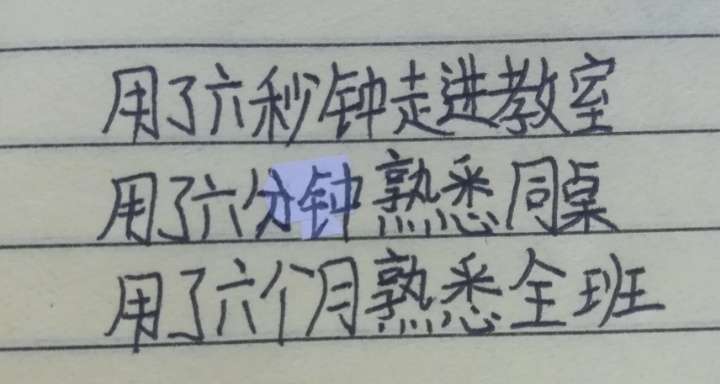 用了六秒钟走进教室
用了六分钟熟悉同桌
用了六个月熟悉全班